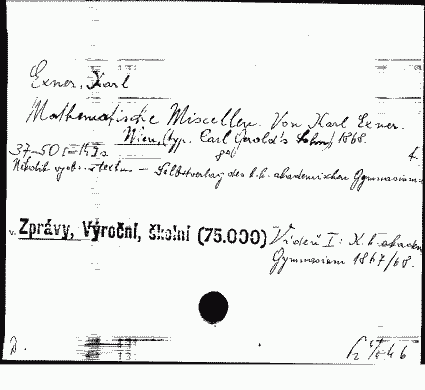 Exner, Karl
Mathematische Miscellen. Von Karl Exner.
Wien, (typ. Carl Gerold's Sohn) 1868.
37-50 s. 8°
Několik vyobr. v textu. — Selbstverlag des k. k. akademischen Gymnasiums
v. Zprávy, Výroční, školní (75.000) Vídeň I: K. k. akadem
Gymnasium 1867/68.
D.